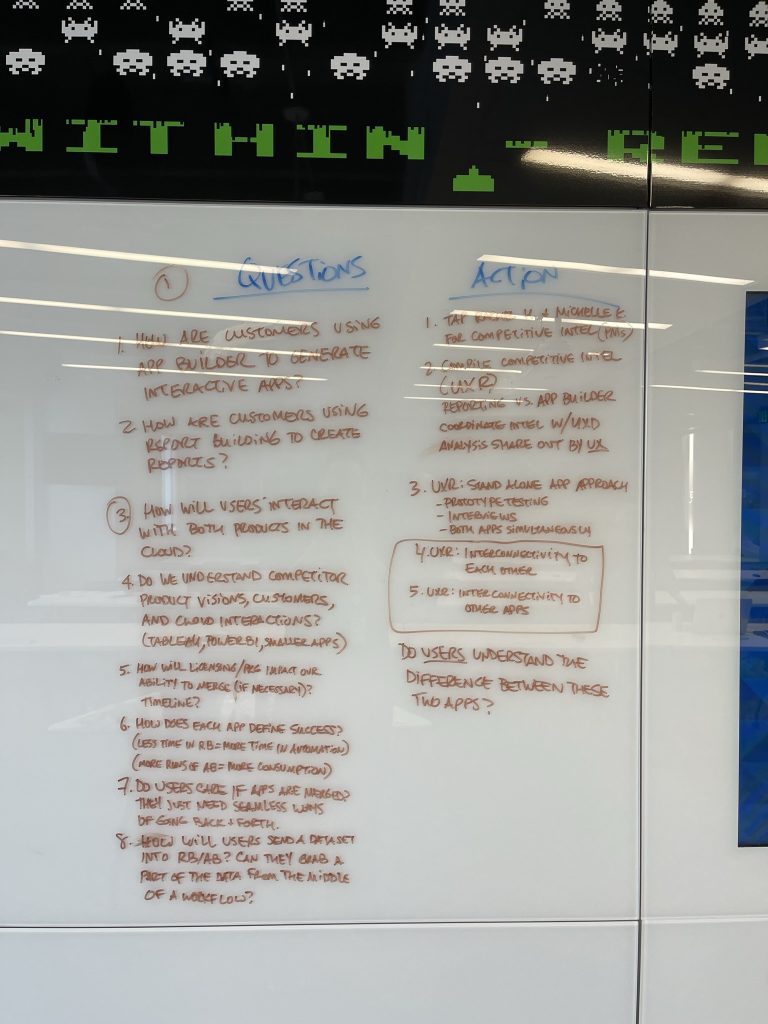 WITHIN - RE
1 QUESTIONS
1. HOW ARE CUSTOMERS USING
APP BUILDER TO GENERATE
INTERACTIVE APPS?
2. HOW ARE CUSTOMERS USING
REPORT BUILDING TO CREATE
REPORTS?
3. HOW WILL USERS INTERACT
WITH BOTH PRODUCTS IN THE
CLOUD?
4. DO WE UNDERSTAND COMPETITOR
PRODUCT VISIONS, CUSTOMERS,
AND CLOUD INTERACTIONS?
(TABLEAU, POWERBI, SMALLER APPS)
5. HOW WILL LICENSING/PKG IMPACT OUR
ABILITY TO MERGE (IF NECESSARY)?
TIMELINE?
6. HOW DOES EACH APP DEFINE SUCCESS?
(LESS TIME IN RB = MORE TIME IN AUTOMATION)
(MORE RUNS OF AB = MORE CONSUMPTION)
7. DO USERS CARE IF APPS ARE MERGED?
THEY JUST NEED SEAMLESS WAYS
OF GOING BACK + FORTH.
8. HOW WILL USERS SEND A DATASET
INTO RB/AB? CAN THEY GRAB A
PART OF THE DATA FROM THE MIDDLE
OF A WORKFLOW?
ACTION
1. TAP K. & MICHELLE K
FOR COMPETITIVE INTEL (PMS)
2. COMPILE COMPETITIVE INTEL
(UXR)
REPORTING VS. APP BUILDER
COORDINATE INTEL W/UXD
ANALYSIS SHARE OUT BY UX
3. UXR: STAND ALONE APP APPROACH
- PROTOTYPE TESTING
- INTERVIEWS
- BOTH APPS SIMULTANEOUSLY
4. UXR: INTERCONNECTIVITY TO
EACH OTHER
5. UXR: INTERCONNECTIVITY TO
OTHER APPS
DO USERS UNDERSTAND THE
DIFFERENCE BETWEEN THESE
TWO APPS?